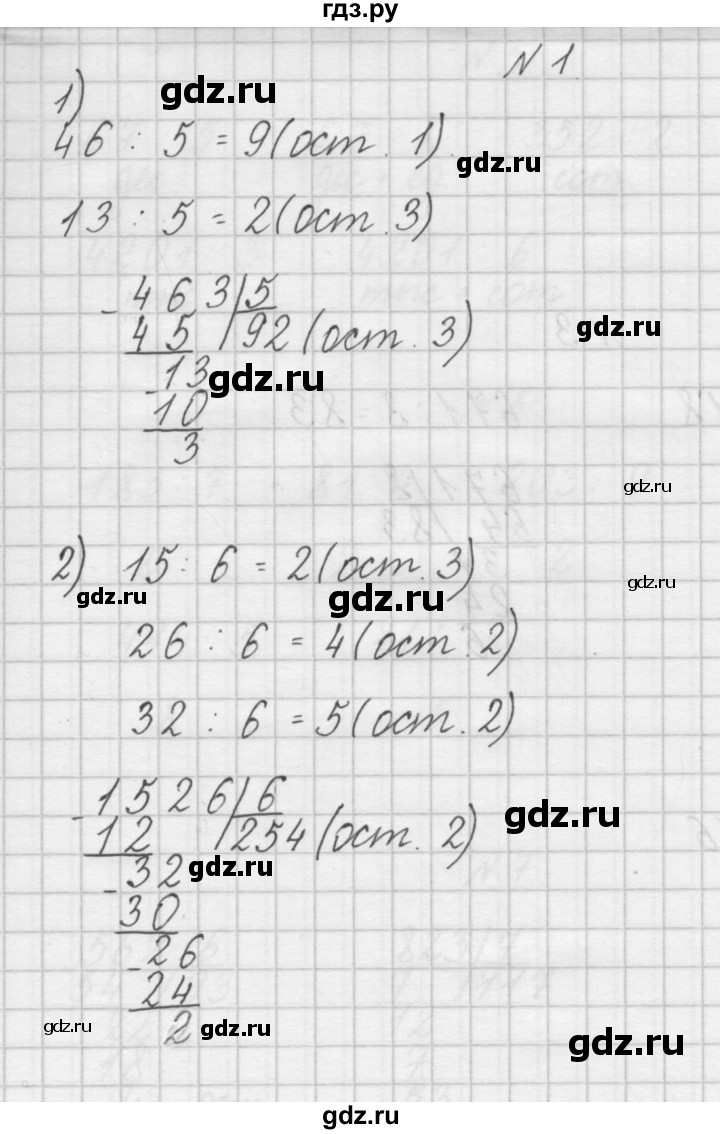 гдз.ру
N 1.
1) gdz.ru
46 : 5 = 9 (ост. 1) gdz.ru
13 : 5 = 2 (ост. 3)
- 463 | 5
45 | 92 (ост. 3) gdz.ru
- 13 gdz.ru
10
3
gdz.ru
2) 15 : 6 = 2 (ост. 3) gdz.ru
gdz.ru gdz.ru
26 : 6 = 4 (ост. 2)
32 : 6 = 5 (ост. 2)
- 1526 | 6 gdz.ru
12 | 254 (ост. 2)
- 32 gdz.ru
30
- 26
24
2
gdz.ru gdz.ru gdz.ru
gdz.ru